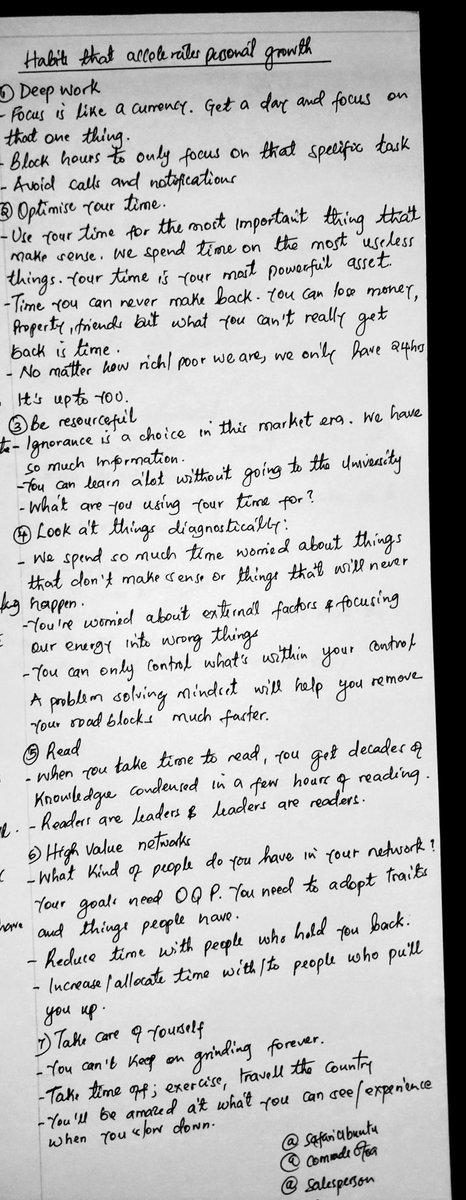 Habits that accelerates personal growth
① Deep work
- Focus is like a currency. Get a day and focus on
that one thing.
- Block hours to only focus on that specific task
- Avoid calls and notifications
② Optimise your time.
- Use your time for the most important thing that
make sense. We spend time on the most useless
things. Your time is your most powerful asset.
- Time you can never make back. You can lose money,
property, friends but what you can't really get
back is time.
- No matter how rich/poor we are, we only have 24hrs
It's up to you.
③ Be resourceful
- Ignorance is a choice in this market era. We have
so much information.
- You can learn alot without going to the University
- What are you using your time for?
④ Look at things diagnostically:
- We spend so much time worried about things
that don't make sense or things that will never
happen.
- You're worried about external factors & focusing
our energy into wrong things
- You can only control what's within your control
A problem solving mindset will help you remove
your road blocks much faster.
⑤ Read
- When you take time to read, you get decades of
knowledge condensed in a few hours of reading.
- Readers are leaders & leaders are readers.
⑥ High Value networks
- What kind of people do you have in your network?
Your goals need OQP. You need to adopt traits
and things people have.
- Reduce time with people who hold you back.
- Increase/allocate time with/to people who pull
you up.
⑦ Take care of yourself
- You can't keep on grinding forever.
- Take time off; exercise, travell the country
- You'll be amazed at what you can see/experience
when you slow down.
@ Safari Ubuntu
@
@ Salesperson